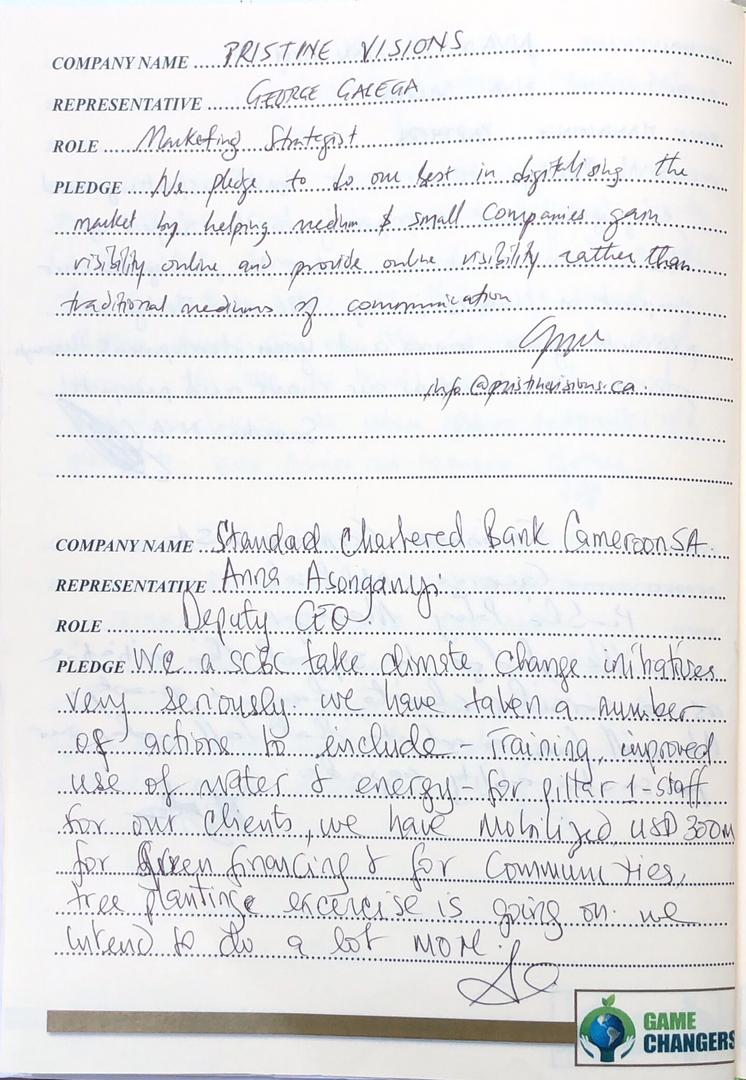 COMPANY NAME PRISTINE VISIONS
REPRESENTATIVE GEORGE GALEGA
ROLE Marketing Strategist
PLEDGE We pledge to do our best in digitalising the
market by helping medium & small companies gain
visibility online and provide online visibility rather than
traditional mediums of communication
info@pristinevisions.ca
COMPANY NAME Standad Chartered Bank Cameroon SA.
REPRESENTATIVE Anna Asonganyi
ROLE Deputy CEO
PLEDGE We a SCBC take climate change initiatives
very seriously. we have taken a number
of actions to include - Training, improved
use of water & energy - for pillar 1 - staff
for our clients, we have Mobilized USD 300M
for Green financing & for Communities,
tree planting excercise is going on. we
intend to do a lot more.
GAME
CHANGERS